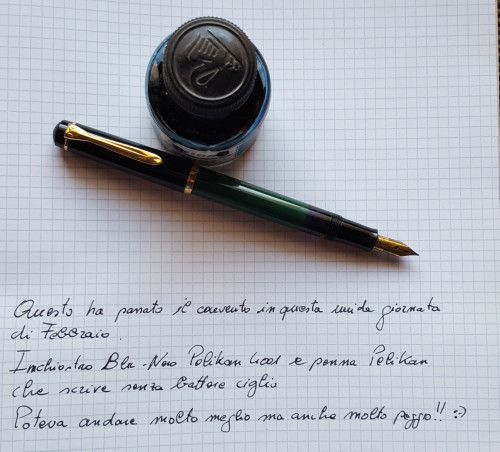 Questo ha passato il convento in questa umida giornata
di Febbraio.
Inchiostro Blu-Nero Pelikan 4001 e penna Pelikan
che scrive senza battere ciglio
Poteva andare molto meglio ma anche molto peggio!! :-)